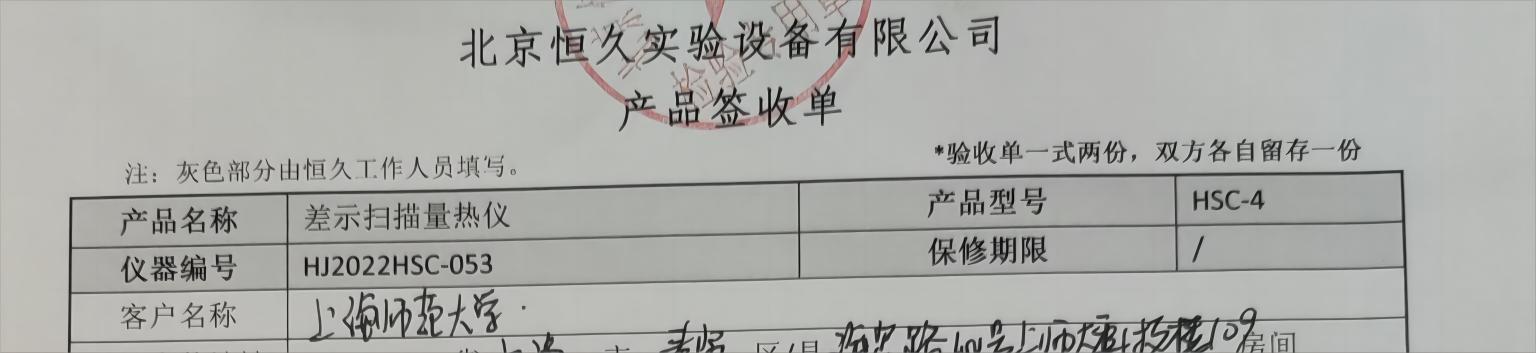 北京恒久实验设备有限公司
产品签收单
注：灰色部分由恒久工作人员填写。
*验收单一式两份，双方各自留存一份
产品名称 差示扫描量热仪 产品型号 HSC-4
仪器编号 HJ2022HSC-053 保修期限 /
客户名称 上海师范大学
上海 市 奉贤 区/县 海思路 号上师大 科技楼109房间